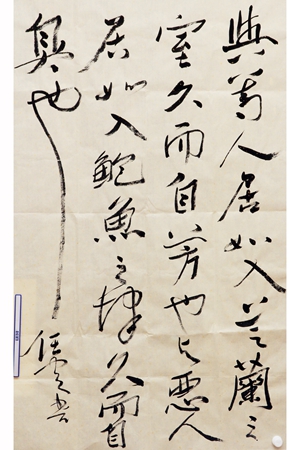 與善人居如入芝蘭之
室久而自芳也与惡人
居如入鮑魚之肆久而自
臭也
任書